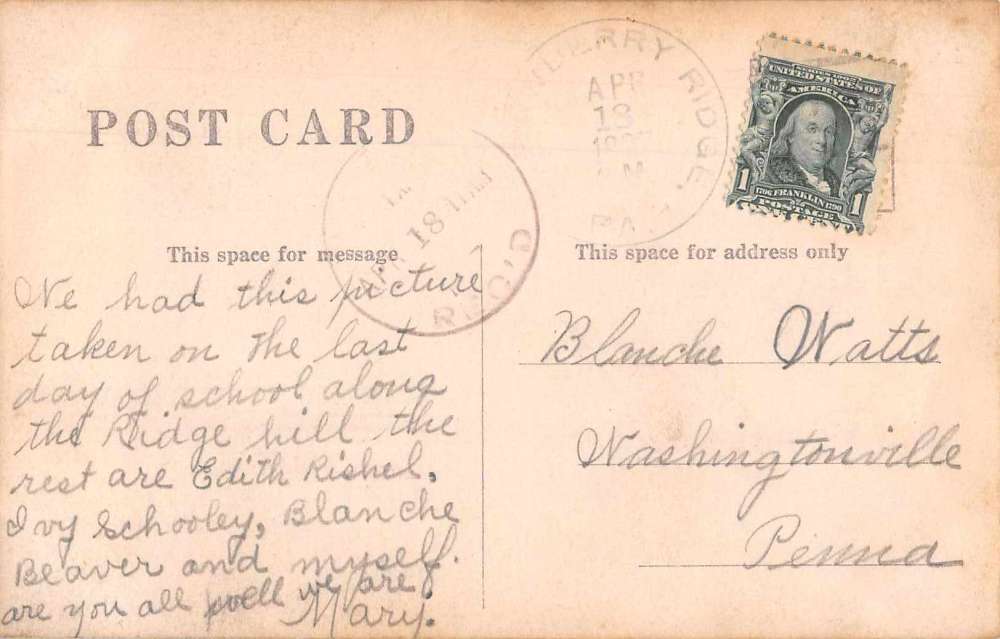 POST CARD
RRY RIDGE.
APR
18
PA.
SERIES 1902
UNITED STATES OF
AMERICA
1 1706 FRANKLIN 1790 1
POSTAGE
18
REC'D
This space for message
This space for address only
We had this picture
taken on the last
day of school along
the Ridge hill the
rest are Edith Rishel,
Ivy Schooley, Blanche
Beaver and myself.
are you all well we are
Mary.
Blanche Watts
Washingtonville
Penna